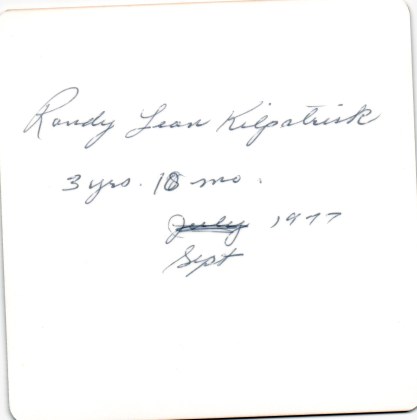 Randy Lean Kilpatrick
3 yrs. 10 mo.
July 1977
Sept